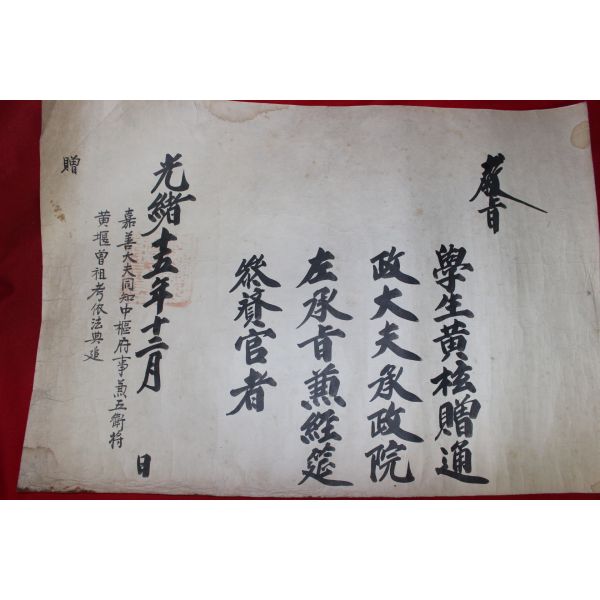 敎旨
學生黃核贈通
政大夫承政院
左承旨兼經筵
叅贊官者
光緖十五年十二月 日
嘉善大夫同知中樞府事兼五衛將
黃堰曾祖考依法典追
贈